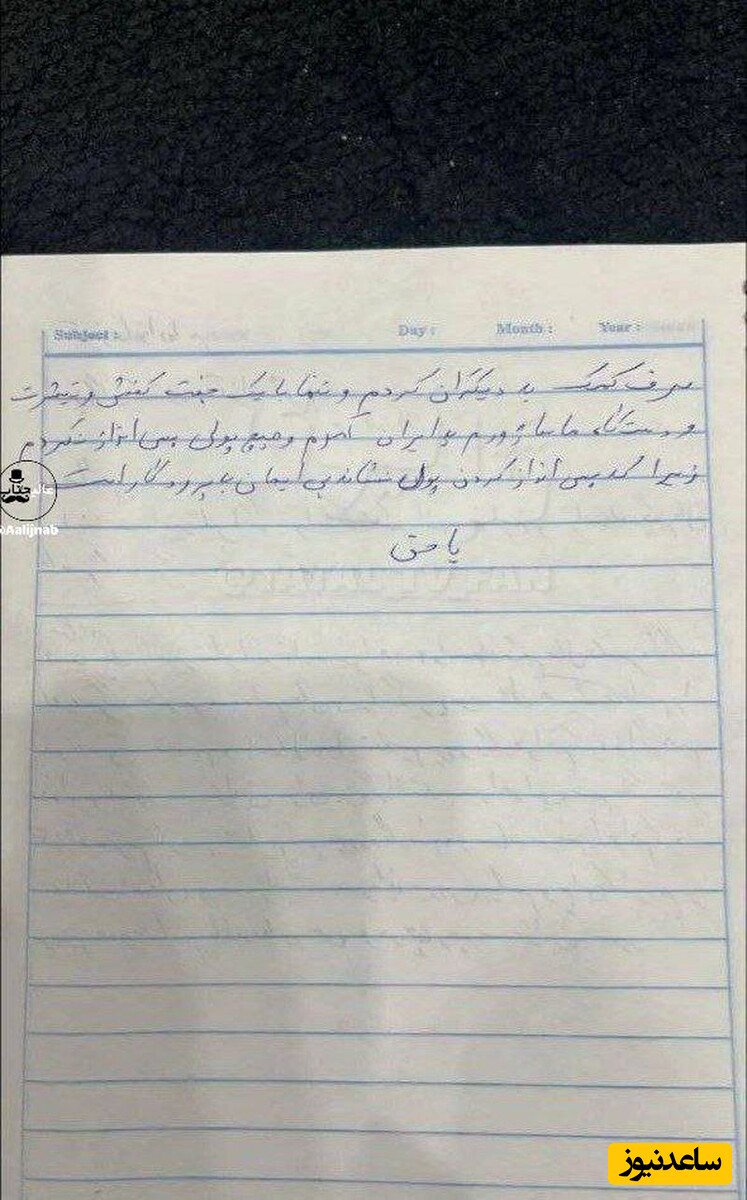 Subject : Day : Month : Year :
صرف کمک به دیگران کردم و تنها با یک جفت کفش و تیشرت
و دستگاه ماساژورم به ایران آمدم و هیچ پولی پس انداز نکردم
زیرا که پس انداز کردن پول نشانه بی ایمان با پروردگار است
یا حق
عالی جناب
@Aalijnab
ساعدنیوز